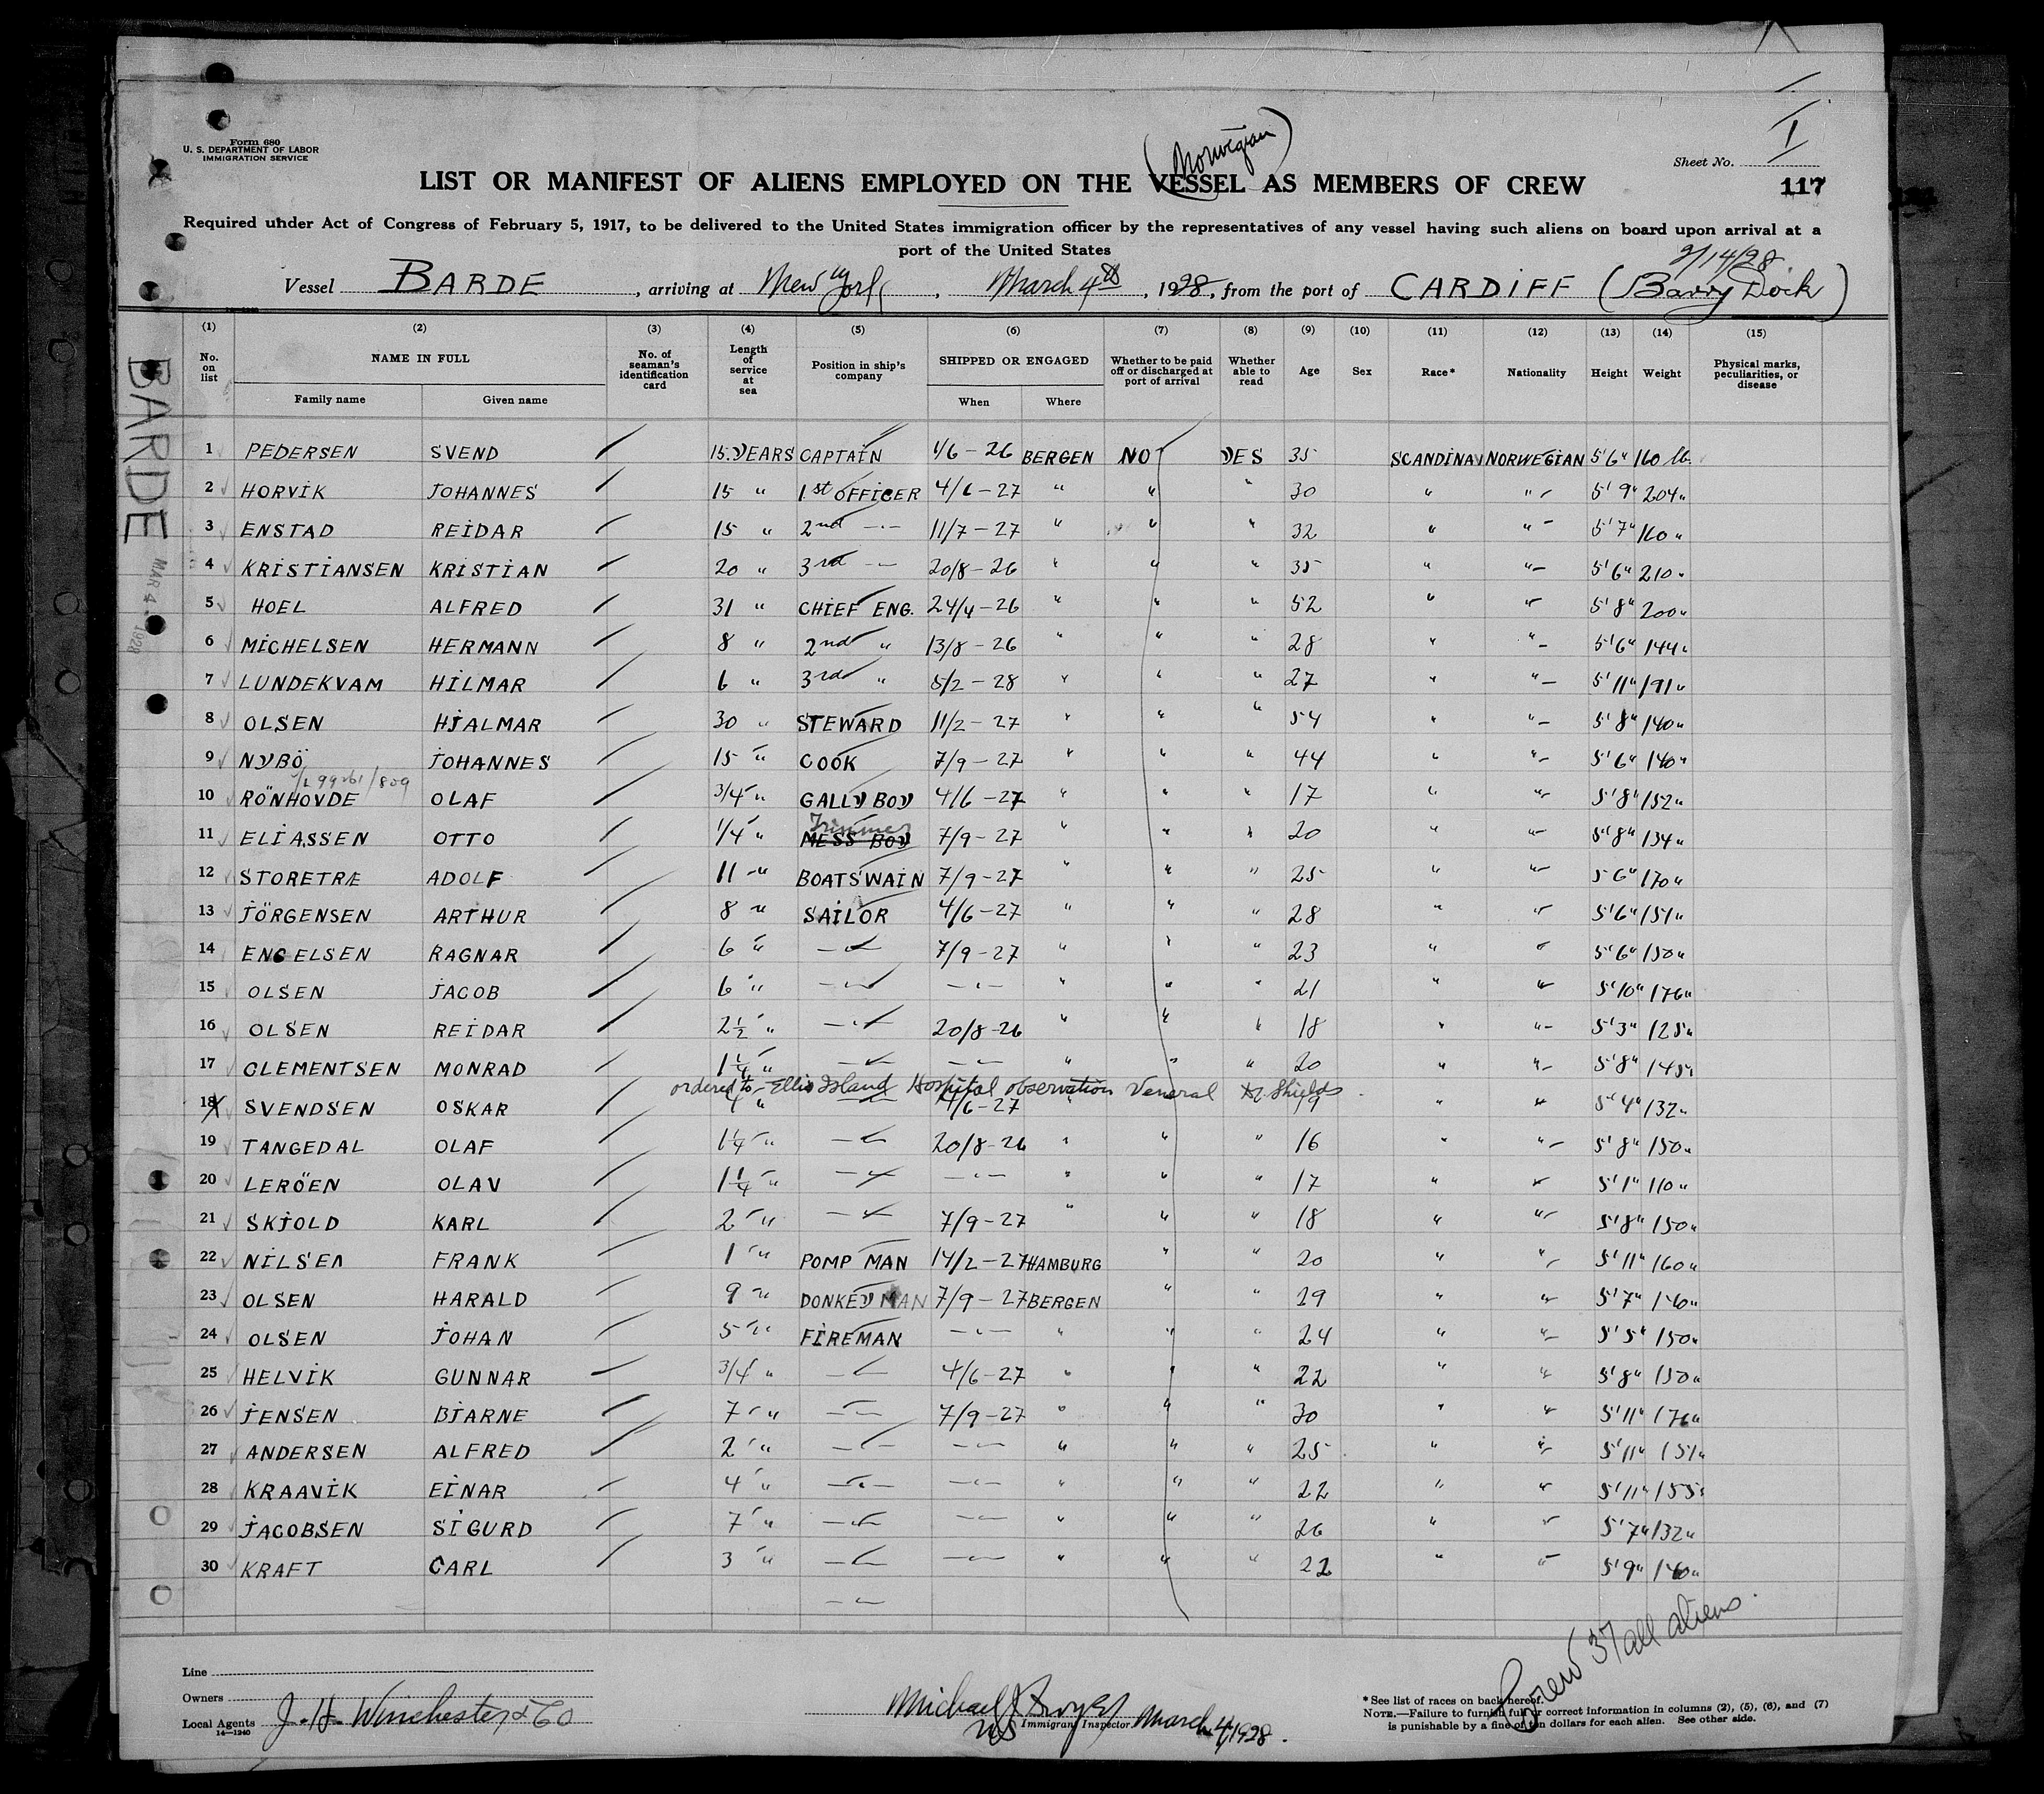 I
Form 680
U. S. DEPARTMENT OF LABOR
IMMIGRATION SERVICE
Sheet No.
(Norwegian)
LIST OR MANIFEST OF ALIENS EMPLOYED ON THE VESSEL AS MEMBERS OF CREW
117
Required under Act of Congress of February 5, 1917, to be delivered to the United States immigration officer by the representatives of any vessel having such aliens on board upon arrival at a
port of the United States
2/14/28
Vessel BARDE, arriving at New York, March 4th, 1928, from the port of CARDIFF (Barry Dock)
(1) (2) (3) (4) (5) (6) (7) (8) (9) (10) (11) (12) (13) (14) (15)
No. on list NAME IN FULL No. of seaman's identification card Length of service at sea Position in ship's company SHIPPED OR ENGAGED Whether to be paid off or discharged at port of arrival Whether able to read Age Sex Race* Nationality Height Weight Physical marks, peculiarities, or disease
Family name Given name When Where
1 PEDERSEN SVEND 15. YEARS CAPTAIN 1/6-26 BERGEN NO YES 35 SCANDINAV NORWEGIAN 5'6" 160 lb.
2 HORVIK JOHANNES 15 " 1st OFFICER 4/6-27 " " " 30 " " 5'9" 204 "
3 ENSTAD REIDAR 15 " 2nd -"- 11/7-27 " " " 32 " " 5'7" 160 "
4 KRISTIANSEN KRISTIAN 20 " 3rd -"- 20/8-26 " " " 35 " " 5'6" 210 "
5 HOEL ALFRED 31 " CHIEF ENG. 24/4-26 " " " 52 " " 5'8" 200 "
6 MICHELSEN HERMANN 8 " 2nd " 13/8-26 " " " 28 " " 5'6" 144 "
7 LUNDEKVAM HILMAR 6 " 3rd " 5/2-28 " " " 27 " " 5'11" 191 "
8 OLSEN HJALMAR 30 " STEWARD 11/2-27 " " " 54 " " 5'8" 140 "
9 NYBÖ JOHANNES 15 " COOK 7/9-27 " " " 44 " " 5'6" 140 "
10 RÖNHOVDE OLAF 3/4 " GALLY BOY 4/6-27 " " " 17 " " 5'8" 152 "
Trimmer
11 ELIASSEN OTTO 1/4 " MESS BOY 7/9-27 " " " 20 " " 5'8" 134 "
12 STORETRÆ ADOLF 11 " BOATSWAIN 7/9-27 " " " 25 " " 5 6" 170 "
13 JÖRGENSEN ARTHUR 8 " SAILOR 4/6-27 " " " 28 " " 5'6" 151 "
14 ENGELSEN RAGNAR 6 " -"- 7/9-27 " " " 23 " " 5'6" 150 "
15 OLSEN JACOB 6 " -"- -"- " " " 21 " " 5'10" 176 "
16 OLSEN REIDAR 2½ " -"- 20/8-26 " " " 18 " " 5'3" 125 "
17 CLEMENTSEN MONRAD 1¼ " -"- -"- " " " 20 " " 5'8" 145 "
ordered to Ellis Island Hospital observation Veneral Shields
18 SVENDSEN OSKAR " -"- 4/6-27 " 19 " " 5'4" 132 "
19 TANGEDAL OLAF 1¼ " -"- 20/8-26 " " " 16 " " 5'8" 150 "
20 LERÖEN OLAV 1¼ " -"- -"- " " " 17 " " 5'1" 110 "
21 SKJOLD KARL 2 " -"- 7/9-27 " " " 18 " " 5'8" 150 "
22 NILSEN FRANK 1 " POMP MAN 14/2-27 HAMBURG " " 20 " " 5'11" 160 "
23 OLSEN HARALD 9 " DONKEY MAN 7/9-27 BERGEN " " 29 " " 5'7" 140 "
24 OLSEN JOHAN 5 " FIREMAN -"- " " " 24 " " 5'5" 150 "
25 HELVIK GUNNAR 3/4 " -"- 4/6-27 " " " 22 " " 5'8" 150 "
26 JENSEN BJARNE 7 " -"- 7/9-27 " " " 30 " " 5'11" 176 "
27 ANDERSEN ALFRED 2 " -"- -"- " " " 25 " " 5'11" 151 "
28 KRAAVIK EINAR 4 " -"- -"- " " " 22 " " 5'11" 155 "
29 JACOBSEN SIGURD 7 " -"- -"- " " " 26 " " 5'7" 132 "
30 KRAFT CARL 3 " -"- -"- " " " 22 " " 5'9" 140 "
-"-
BARDE
MAR 4 1928
Crew 37 all aliens.
Line
Owners
Local Agents J. H. Winchester & Co
14-1240
Michael J Dwyer
Immigrant Inspector. March 4, 1928.
* See list of races on back hereof.
NOTE.—Failure to furnish full or correct information in columns (2), (5), (6), and (7)
is punishable by a fine of ten dollars for each alien. See other side.